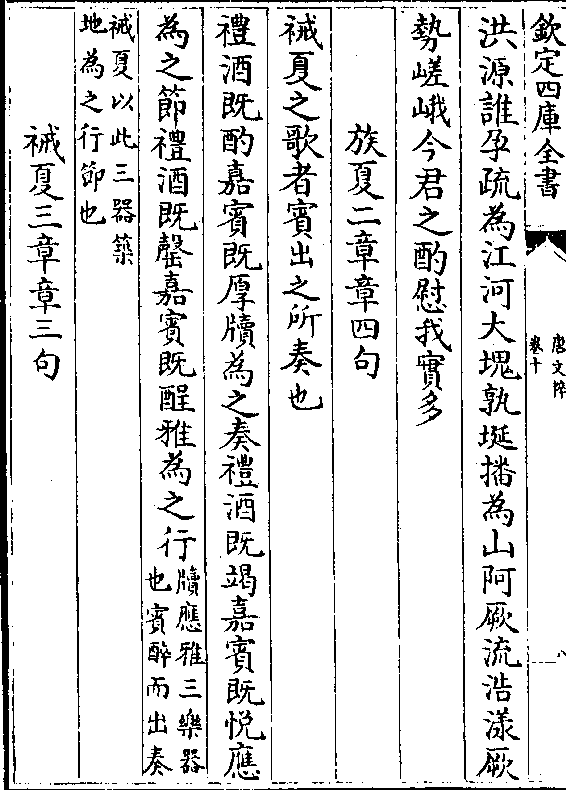 欽定四庫全書
唐文粹
卷十
洪源誰孕疏為江河大塊孰埏播為山阿厥流浩漾厥
勢嵯峨今君之酌慰我實多
族夏二章章四句
祴夏之歌者賓出之所奏也
禮酒既酌嘉賓既厚牘為之奏禮酒既竭嘉賓既悅應
為之節禮酒既罄嘉賓既醒雅為之行
牘應雅三樂器
也賓醉而出奏
祴夏以此三器築
地為之行節也
祴夏三章章三句